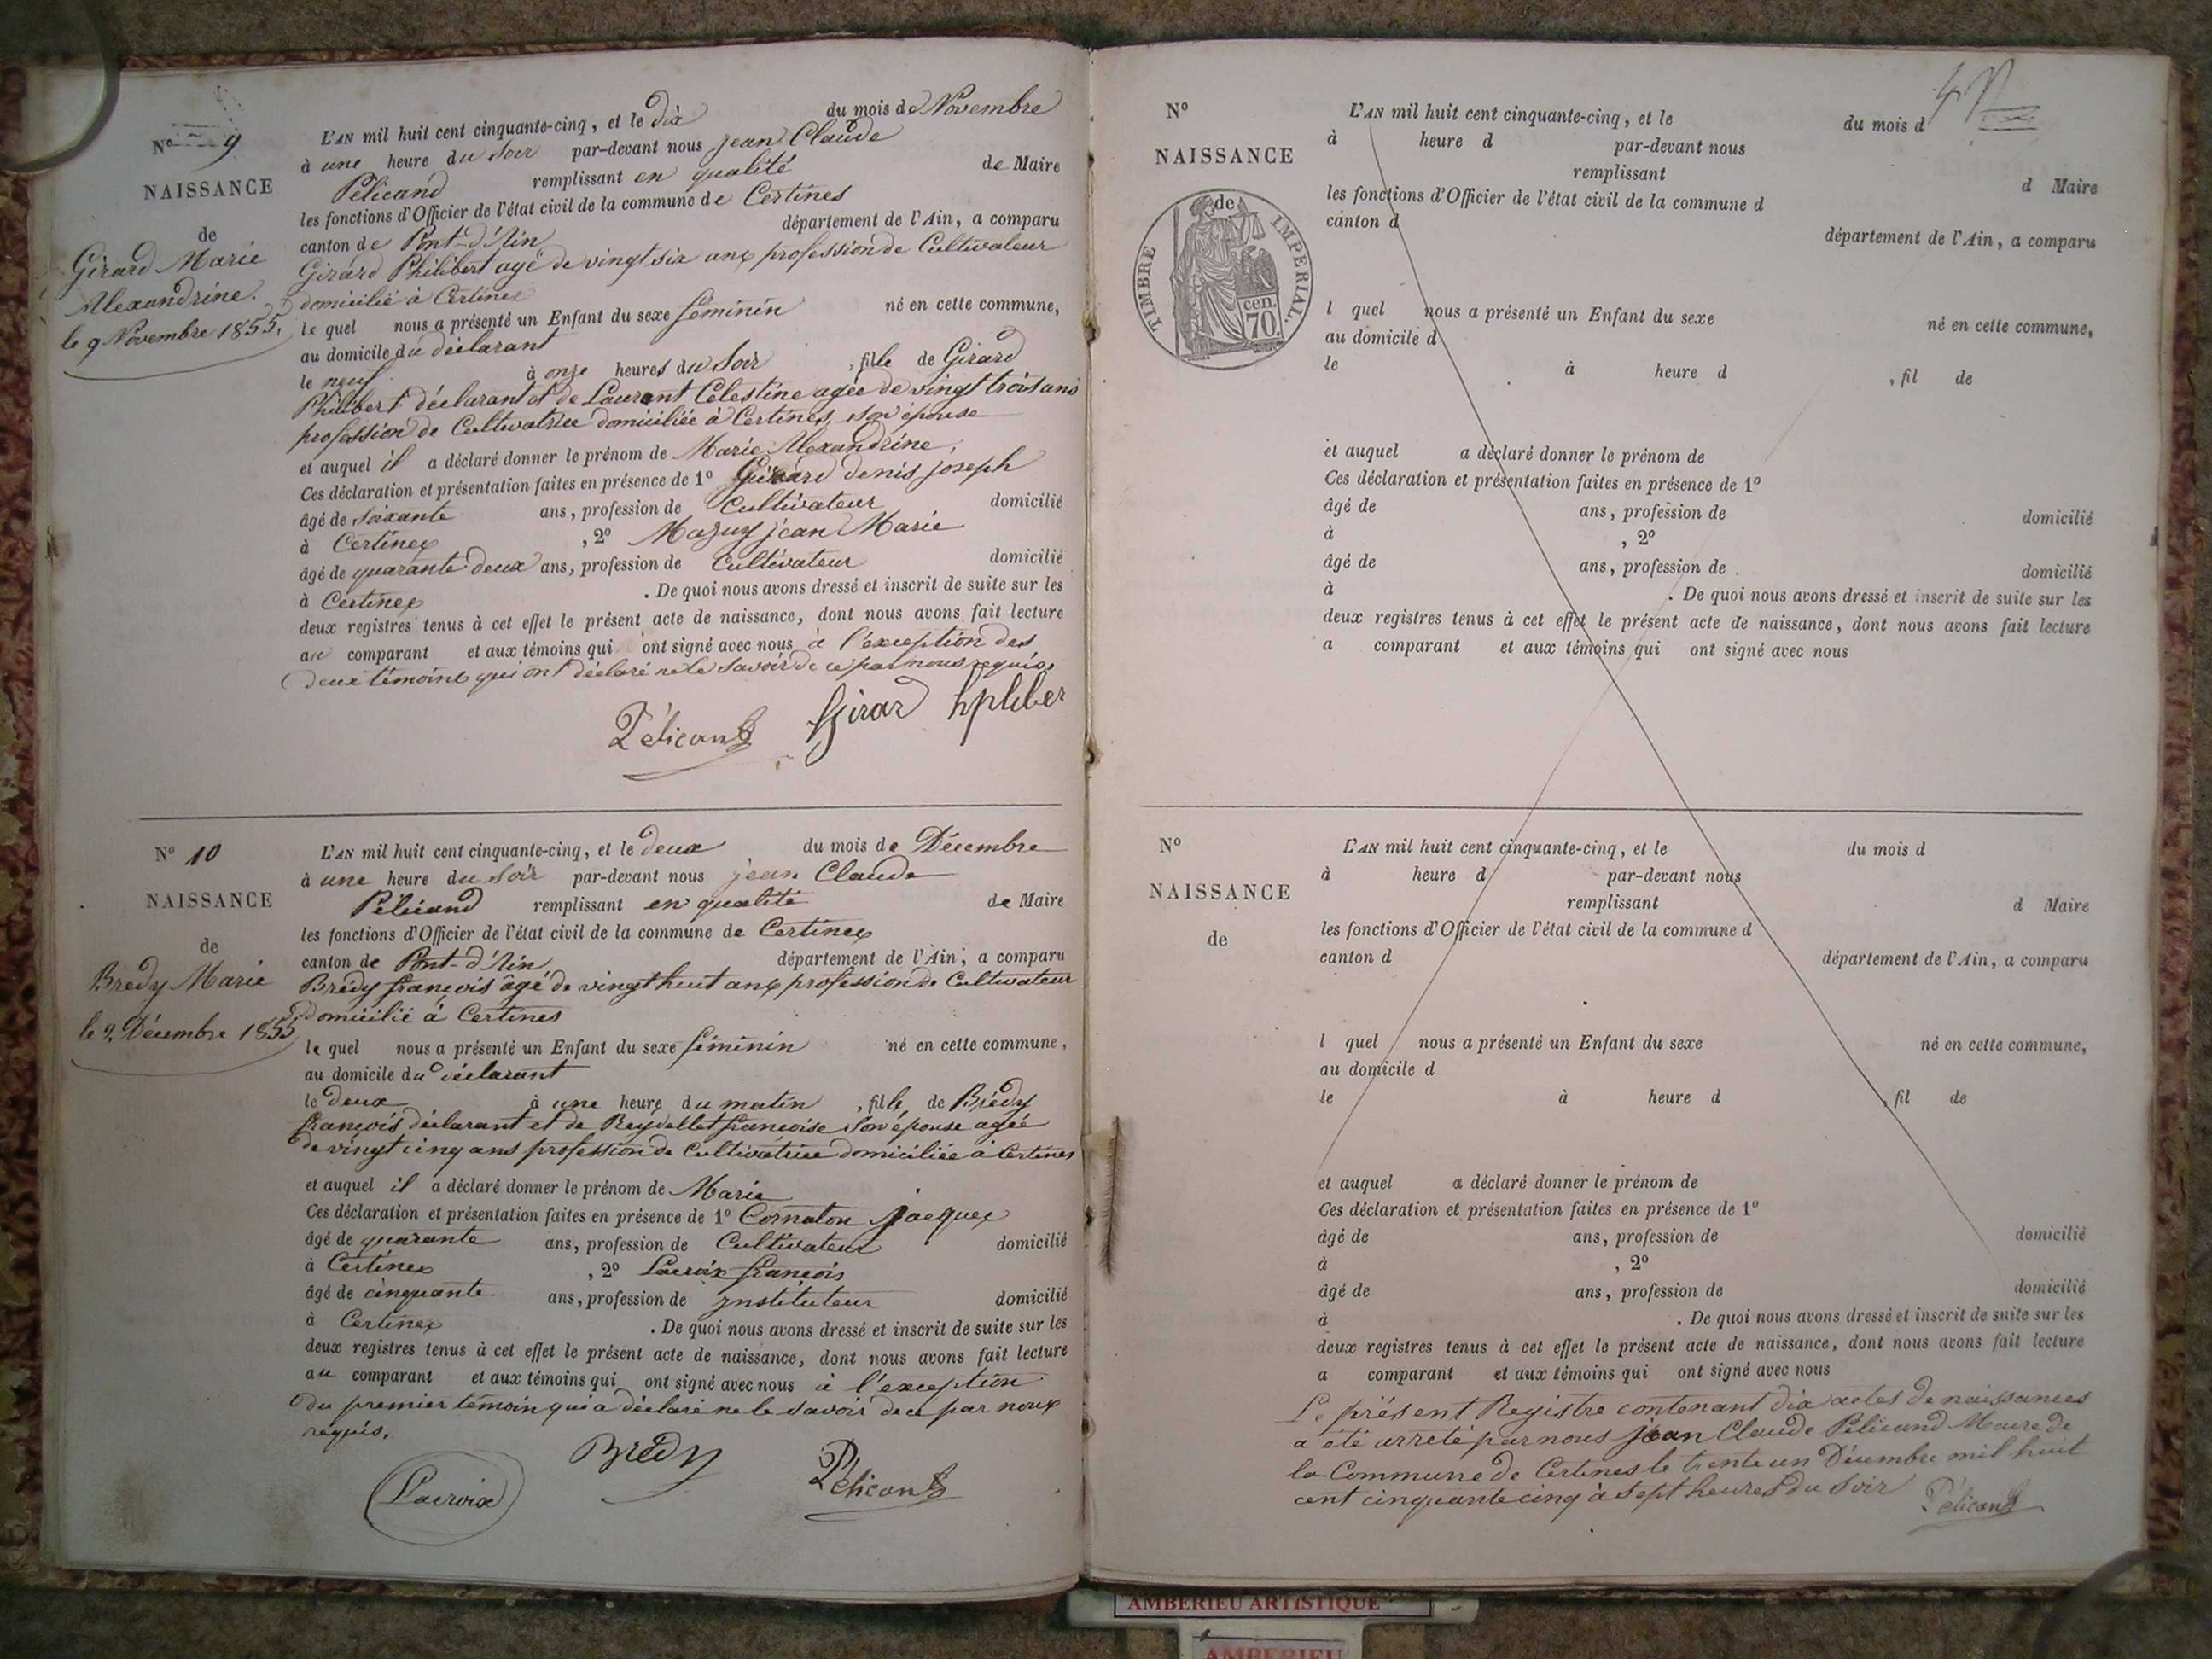 N° 9
NAISSANCE
de
Girard Marie
Alexandrine.
le 9 Novembre 1855.
L'AN mil huit cent cinquante-cinq, et le dix du mois de Novembre
à une heure du Soir par-devant nous jean Claude
Pélicand remplissant en qualité de Maire
les fonctions d'Officier de l'état civil de la commune de Certines
canton de Pont-d'Ain département de l'Ain, a comparu
Girard Philibert agé de vingt six ans profession de Cultivateur
domicilié à Certines
le quel nous a présenté un Enfant du sexe féminin né en cette commune,
au domicile du déclarant
le neuf à onze heures du Soir, fille de Girard
Philibert déclarant et de Laurent Célestine agée de vingt trois ans
profession de Cultivatrice domiciliée à Certines, son épouse
et auquel il a déclaré donner le prénom de Marie Alexandrine,
Ces déclaration et présentation faites en présence de 1° Girard denis joseph
âgé de Soixante ans, profession de Cultivateur domicilié
à Certines, 2° Mazuy jean Marie
âgé de quarante deux ans, profession de Cultivateur domicilié
à Certines. De quoi nous avons dressé et inscrit de suite sur les
deux registres tenus à cet effet le présent acte de naissance, dont nous avons fait lecture
au comparant et aux témoins qui ont signé avec nous à l'exception des
deux témoins qui ont déclaré ne le savoir de ce par nous requis.
Pélicand Girar
N° 10
NAISSANCE
de
Bredy Marie
le 2, Décembre 1855
L'AN mil huit cent cinquante-cinq, et le deux du mois de Décembre
à une heure du Soir par-devant nous jean Claude
Pélicand remplissant en qualité de Maire
les fonctions d'Officier de l'état civil de la commune de Certines
canton de Pont-d'Ain département de l'Ain, a comparu
Brédy françois âgé de vingt huit ans profession de Cultivateur
domicilié à Certines
le quel nous a présenté un Enfant du sexe féminin né en cette commune,
au domicile du déclarant
le deux à une heure du matin, fille de Brédy
françois déclarant et de Reydellet françoise son épouse agée
de vingt cinq ans profession de Cultivatrice domiciliée à Certines
et auquel il a déclaré donner le prénom de Marie
Ces déclaration et présentation faites en présence de 1° Cornaton jacques
âgé de quarante ans, profession de Cultivateur domicilié
à Certines, 2° Lacroix françois
âgé de cinquante ans, profession de Instituteur domicilié
à Certines. De quoi nous avons dressé et inscrit de suite sur les
deux registres tenus à cet effet le présent acte de naissance, dont nous avons fait lecture
au comparant et aux témoins qui ont signé avec nous à l'exception
du premier témoin qui a déclaré ne le savoir de ce par nous
requis.
Lacroix Brédy Pélicand
N°
NAISSANCE
de
TIMBRE IMPERIAL
70 cen.
L'AN mil huit cent cinquante-cinq, et le du mois d
à heure d par-devant nous
remplissant d Maire
les fonctions d'Officier de l'état civil de la commune d
canton d département de l'Ain, a comparu
l quel nous a présenté un Enfant du sexe né en cette commune,
au domicile d
le à heure d, fil de
et auquel a déclaré donner le prénom de
Ces déclaration et présentation faites en présence de 1°
âgé de ans, profession de domicilié
à, 2°
âgé de ans, profession de domicilié
à. De quoi nous avons dressé et inscrit de suite sur les
deux registres tenus à cet effet le présent acte de naissance, dont nous avons fait lecture
a comparant et aux témoins qui ont signé avec nous
N°
NAISSANCE
de
L'AN mil huit cent cinquante-cinq, et le du mois d
à heure d par-devant nous
remplissant d Maire
les fonctions d'Officier de l'état civil de la commune d
canton d département de l'Ain, a comparu
l quel nous a présenté un Enfant du sexe né en cette commune,
au domicile d
le à heure d, fil de
et auquel a déclaré donner le prénom de
Ces déclaration et présentation faites en présence de 1°
âgé de ans, profession de domicilié
à, 2°
âgé de ans, profession de domicilié
à. De quoi nous avons dressé et inscrit de suite sur les
deux registres tenus à cet effet le présent acte de naissance, dont nous avons fait lecture
a comparant et aux témoins qui ont signé avec nous
Le présent Registre contenant dix actes de naissances
a été arreté par nous jean Claude Pélicand Maire de
la Commune de Certines le trente un Décembre mil huit
cent cinquante cinq à Sept heures du Soir Pélicand
AMBERIEU ARTISTIQUE
AMBERIEU